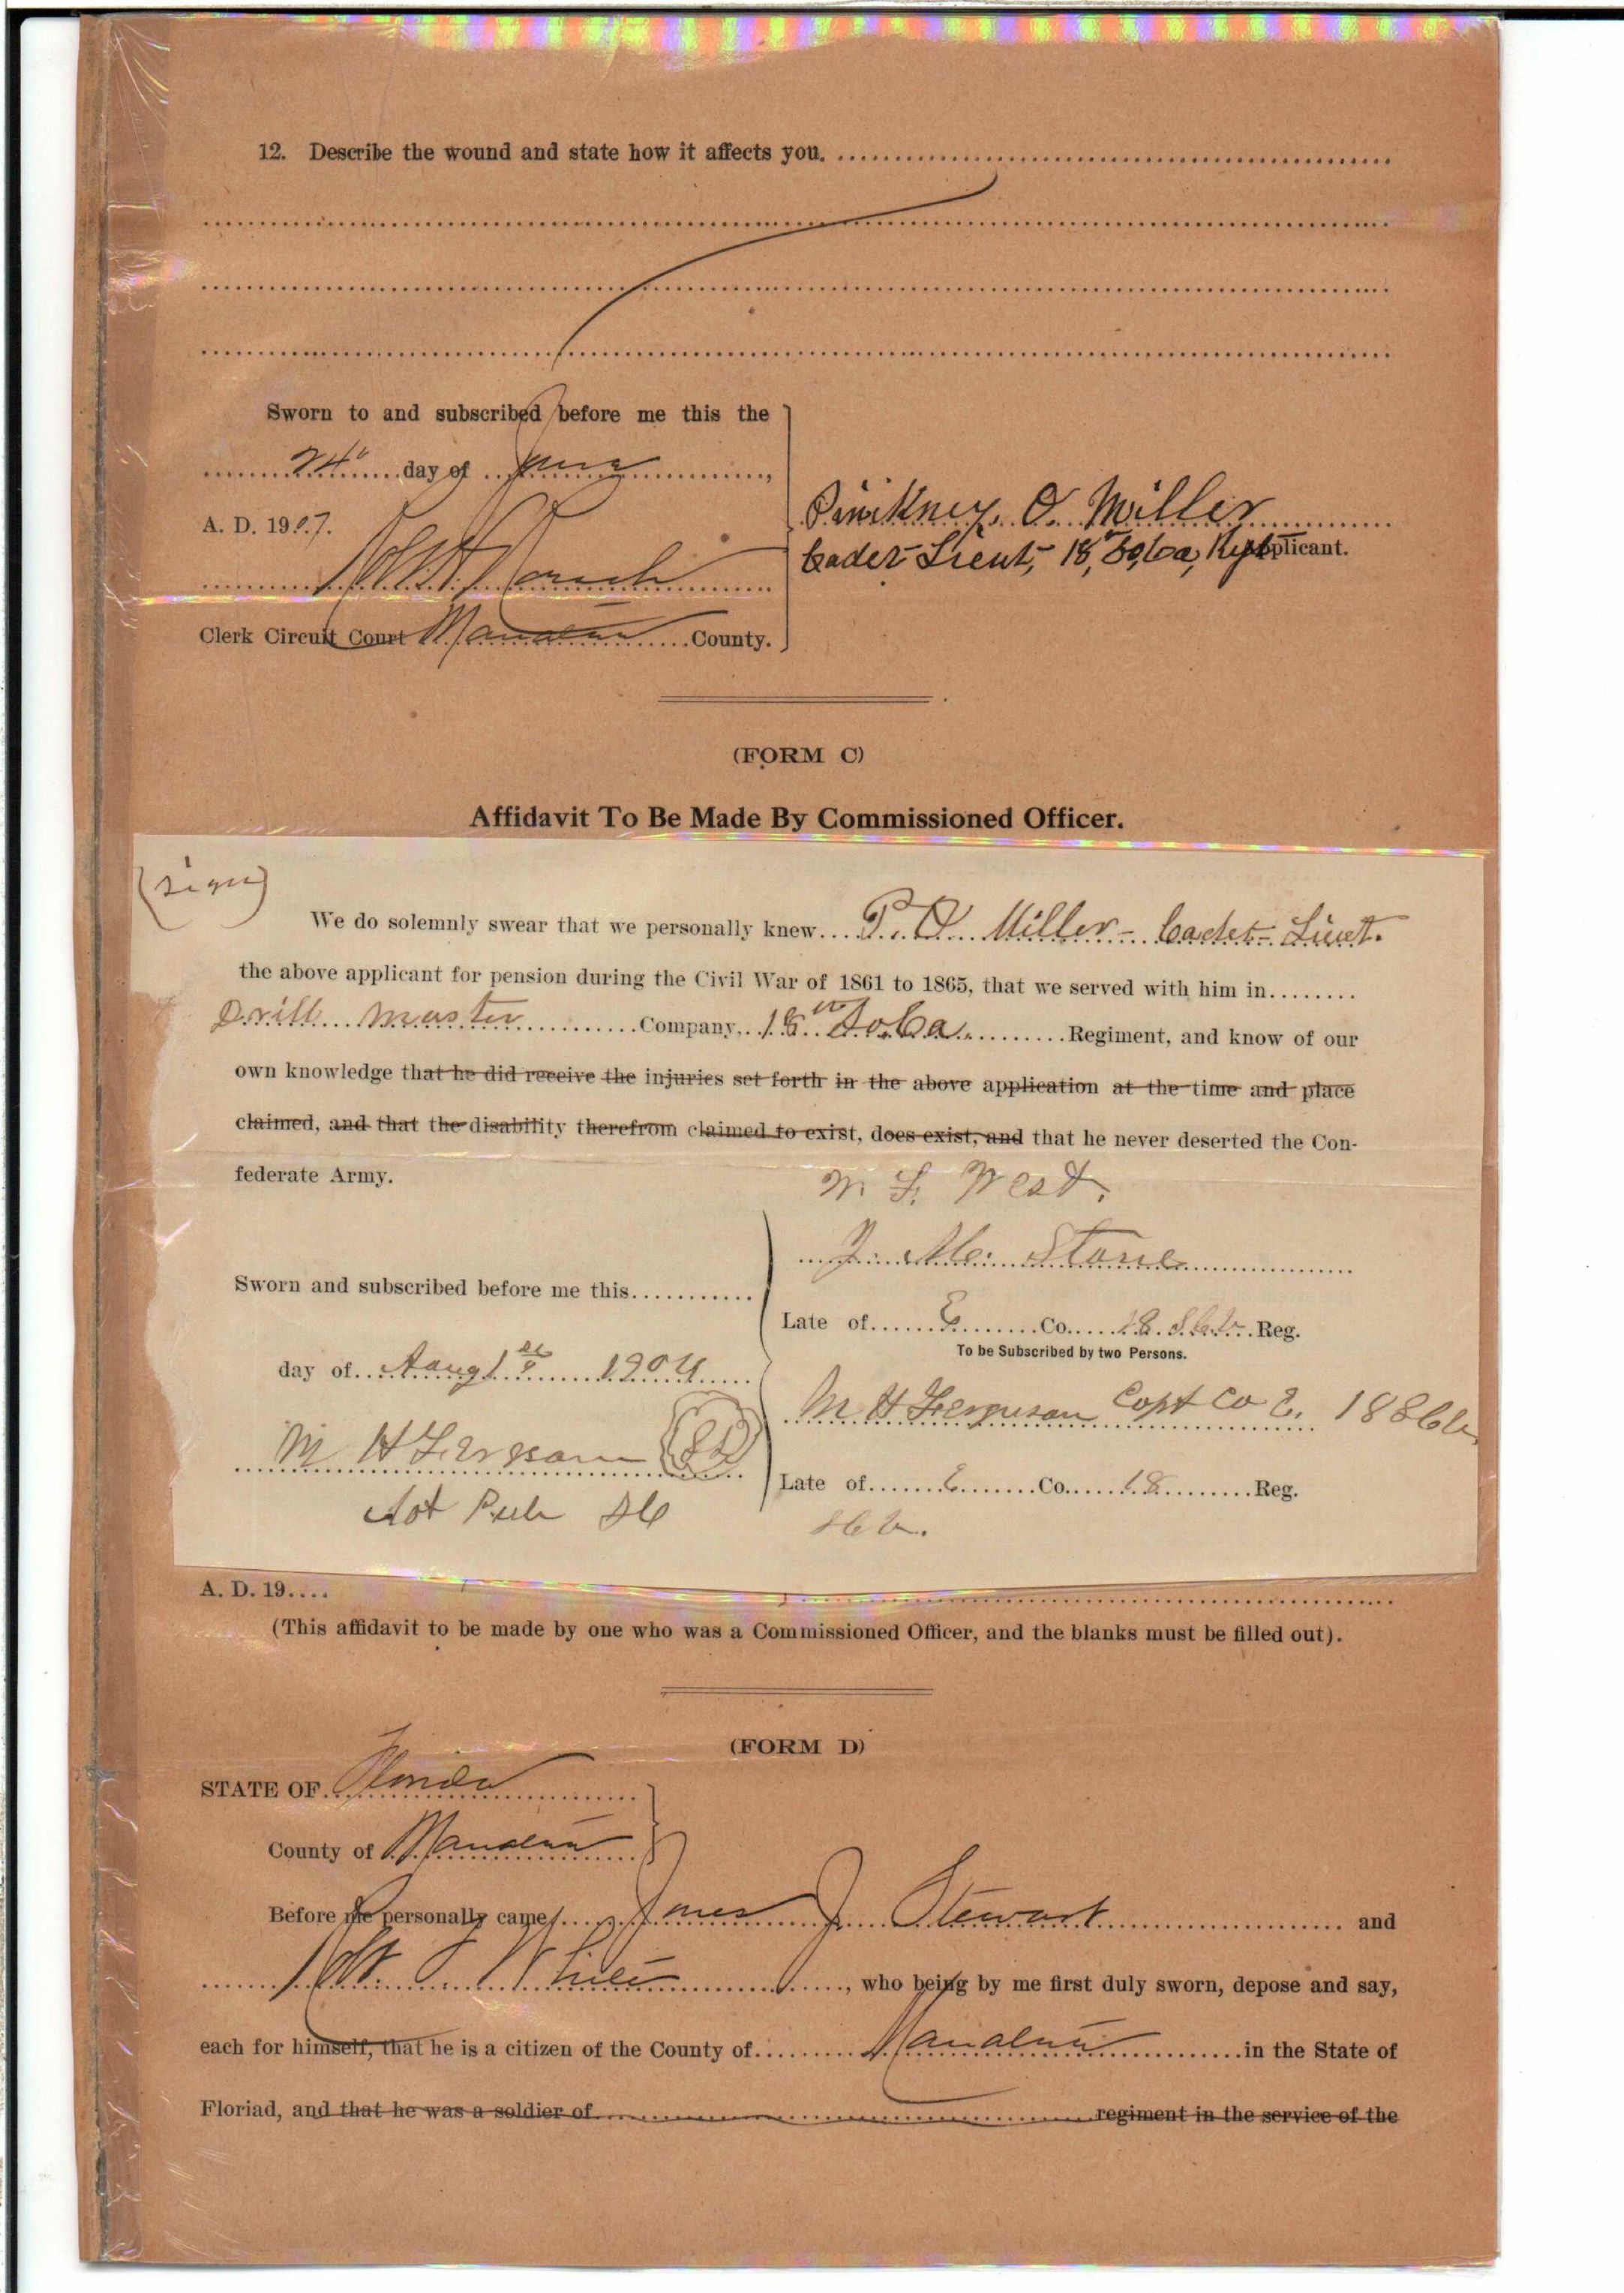 12. Describe the wound and state how it affects you.
Sworn to and subscribed before me this the
24" day of June,
A. D. 1907.
Pinkney O. Miller
Cadet Lieut, 18, So, Ca, Regt Applicant.
Clerk Circuit Court Manatee County.
(FORM C)
Affidavit To Be Made By Commissioned Officer.
(sign)
We do solemnly swear that we personally knew P. O. Miller - Cadet - Lieut.
the above applicant for pension during the Civil War of 1861 to 1865, that we served with him in
Drill Master Company, 18th So. Ca. Regiment, and know of our
own knowledge that he did receive the injuries set forth in the above application at the time and place
claimed, and that the disability therefrom claimed to exist, does exist, and that he never deserted the Con-
federate Army.
M. F. West.
J. Mc. Stone
Sworn and subscribed before me this
Late of E Co. 18. S.C.V. Reg.
To be Subscribed by two Persons.
day of Aug 1st 1904
M H Ferguson Capt Co E. 18 S C V
M H Ferguson
Late of E Co. 18 Reg.
Not Pub SC
S C V.
A. D. 19
(This affidavit to be made by one who was a Commissioned Officer, and the blanks must be filled out).
(FORM D)
STATE OF Florida
County of Manatee
Before me personally came James J. Stewart and
White, who being by me first duly sworn, depose and say,
each for himself, that he is a citizen of the County of Manatee in the State of
Floriad, and that he was a soldier of regiment in the service of the